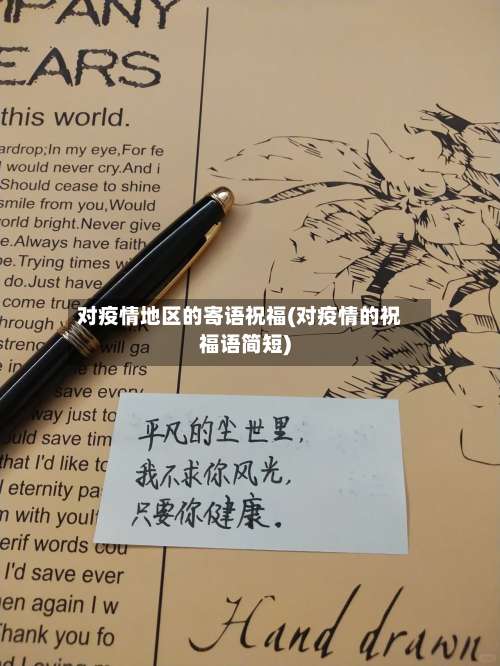 MPANY
EARS
this world.
ardrop;In my eye,For fe
would never cry.And i
Should cease to shine
smile from you,Would
world bright.Never give
e.Always have faith
be.Trying times wi
do.Just have
come true
hrough
对疫情地区的寄语祝福(对疫情的祝
福语简短)
will ga
the firs
save every
way just to
ould save tim
that I'd like to
eternity pa
m with you
erif words cou
I'd save ever
en again I w
Thank you fo
平凡的尘世里,
我不求你风光,
只要你健康。
Hand drawn